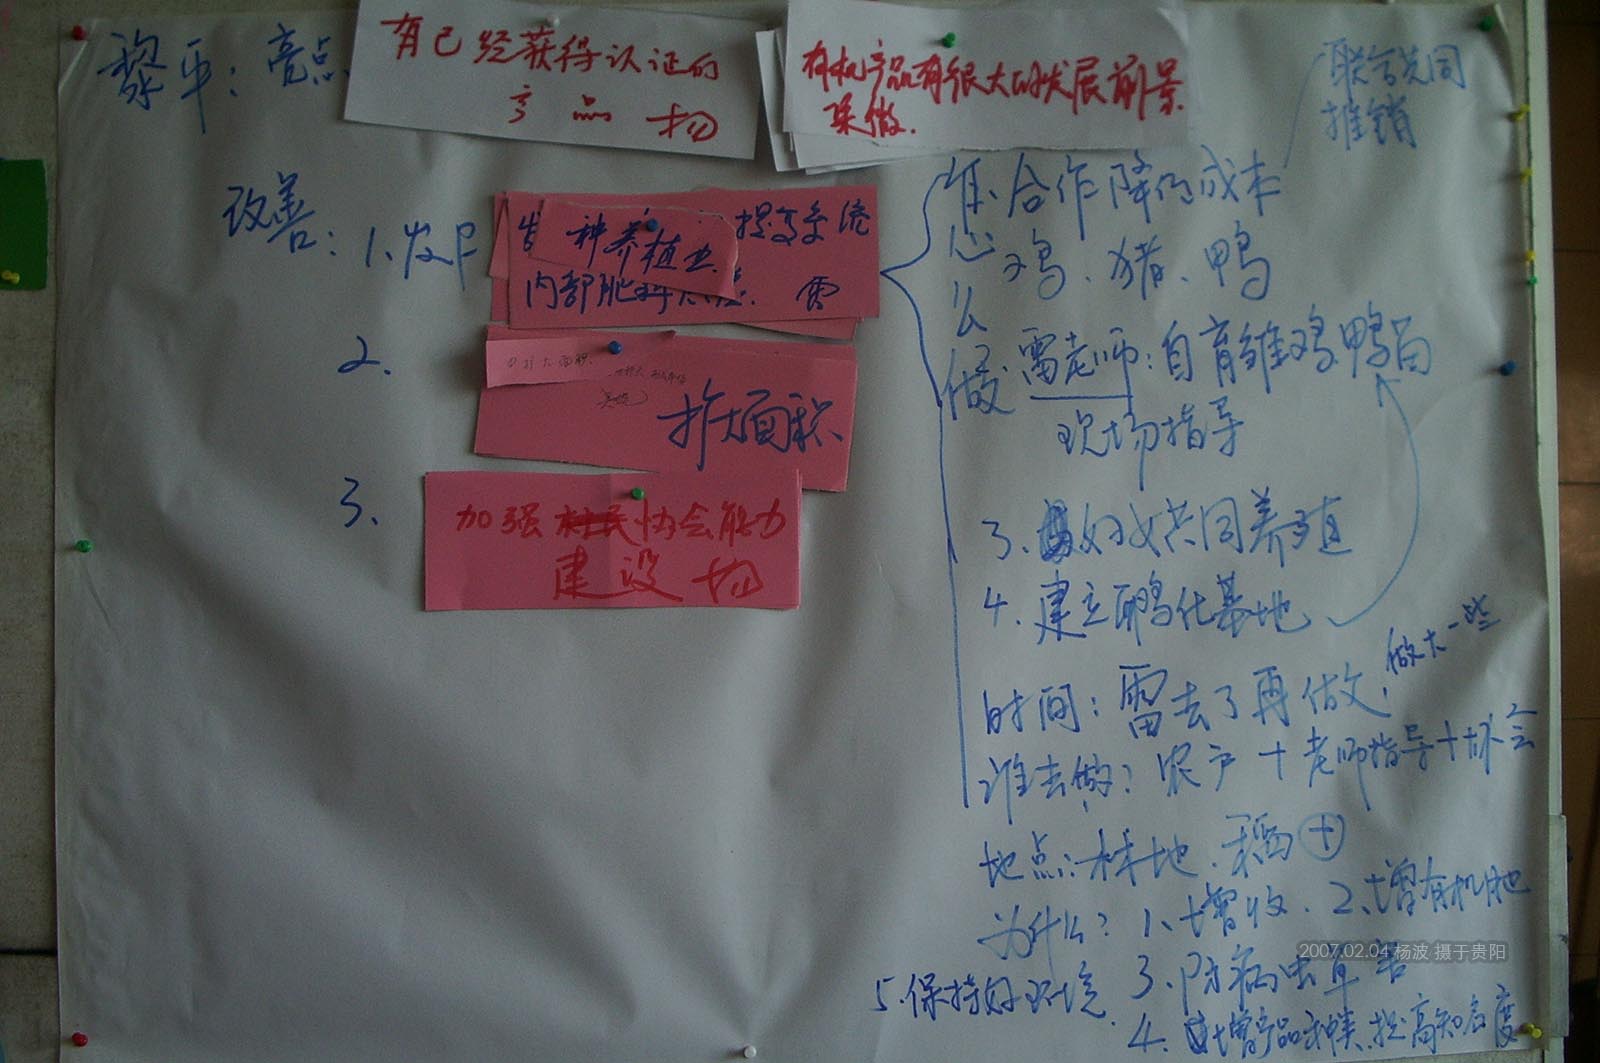 黎平：亮点
有已经获得认证的
产品 杨
有机产品有很大的发展前景
联合共同
推销
改善：1、发户
种养殖业 提高系统
内部肥料 雷
2、
扩大面积
3、
加强村民协会能力
建设 杨
怎么做
合作降的成本
鸡、猪、鸭
雷老师：自育雏鸡鸭苗
现场指导
3、妇女共同养殖
4、建立鸭孵化基地
时间：雷去了再做，做大一些
谁去做？农户＋老师指导＋协会
地点：林地、稻田
为什么？1、增收、2、增有机肥
3、防病虫草害
4、增产品种类、提高知名度
5、保持好环境
2007.02.04 杨波 摄于贵阳